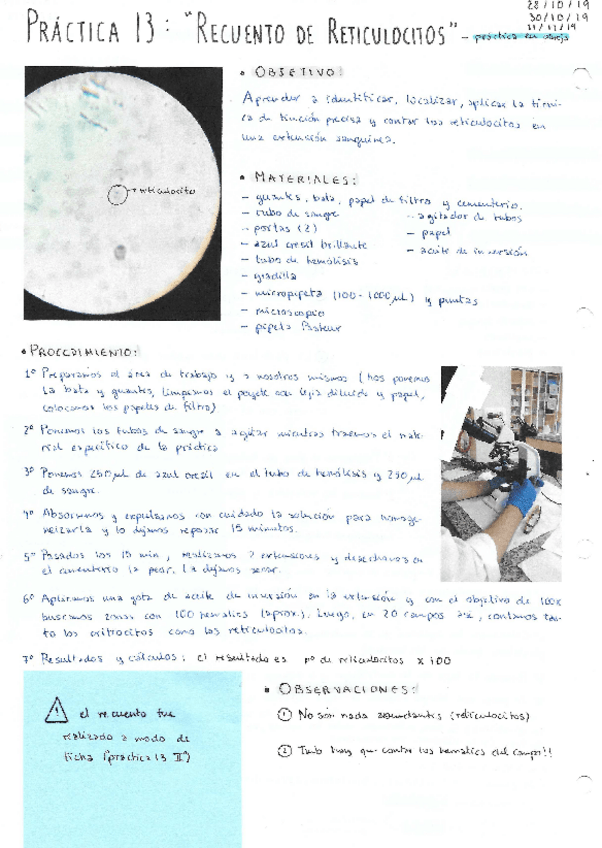 28/10/19
30/10/19
PRÁCTICA 13: "RECUENTO DE RETICULOCITOS" - práctica en
• OBJETIVO:
Aprender a identificar, localizar, aplicar la técni-
ca de tinción precisa y contar los reticulocitos en
una extensión sanguínea.
→ reticulocito
• MATERIALES:
- guantes, bata, papel de filtro y cementerio.
- tubo de sangre
- portas (2)
- azul cresil brillante
- tubo de hemólisis
- gradilla
- micropipeta (100-1000 µL) y puntas
- microscopio
- pipeta Pasteur
- agitador de tubos
- papel
- aceite de inversión
• PROCEDIMIENTO:
1º Preparamos el área de trabajo y a nosotros mismos (nos ponemos
la bata y guantes, limpiamos el poyete con lejía diluida y papel,
colocamos los papeles de filtro)
2º Ponemos los tubos de sangre a agitar mientras traemos el mate-
rial específico de la práctica
3º Ponemos 250 µL de azul cresil en el tubo de hemólisis y 250 µL
de sangre.
4º Absorbemos y expulsamos con cuidado la solución para homoge-
neizarla y lo dejamos reposar 15 minutos.
5º Pasados los 15 min, realizamos 2 extensiones y desechamos en
el cementerio la peor. La dejamos secar.
6º Aplicamos una gota de aceite de inversión en la extensión y con el objetivo de 100x
buscamos zonas con 100 hematíes (aprox.). Luego, en 20 campos, contamos tan-
to los eritrocitos como los reticulocitos.
7º Resultados y cálculos: el resultado es nº de reticulocitos x 100
! el recuento fue
realizado a modo de
ficha (práctica 13 II)
• OBSERVACIONES:
① No son nada abundantes (reticulocitos)
② Tmb hay que contar los hematíes del campo!!